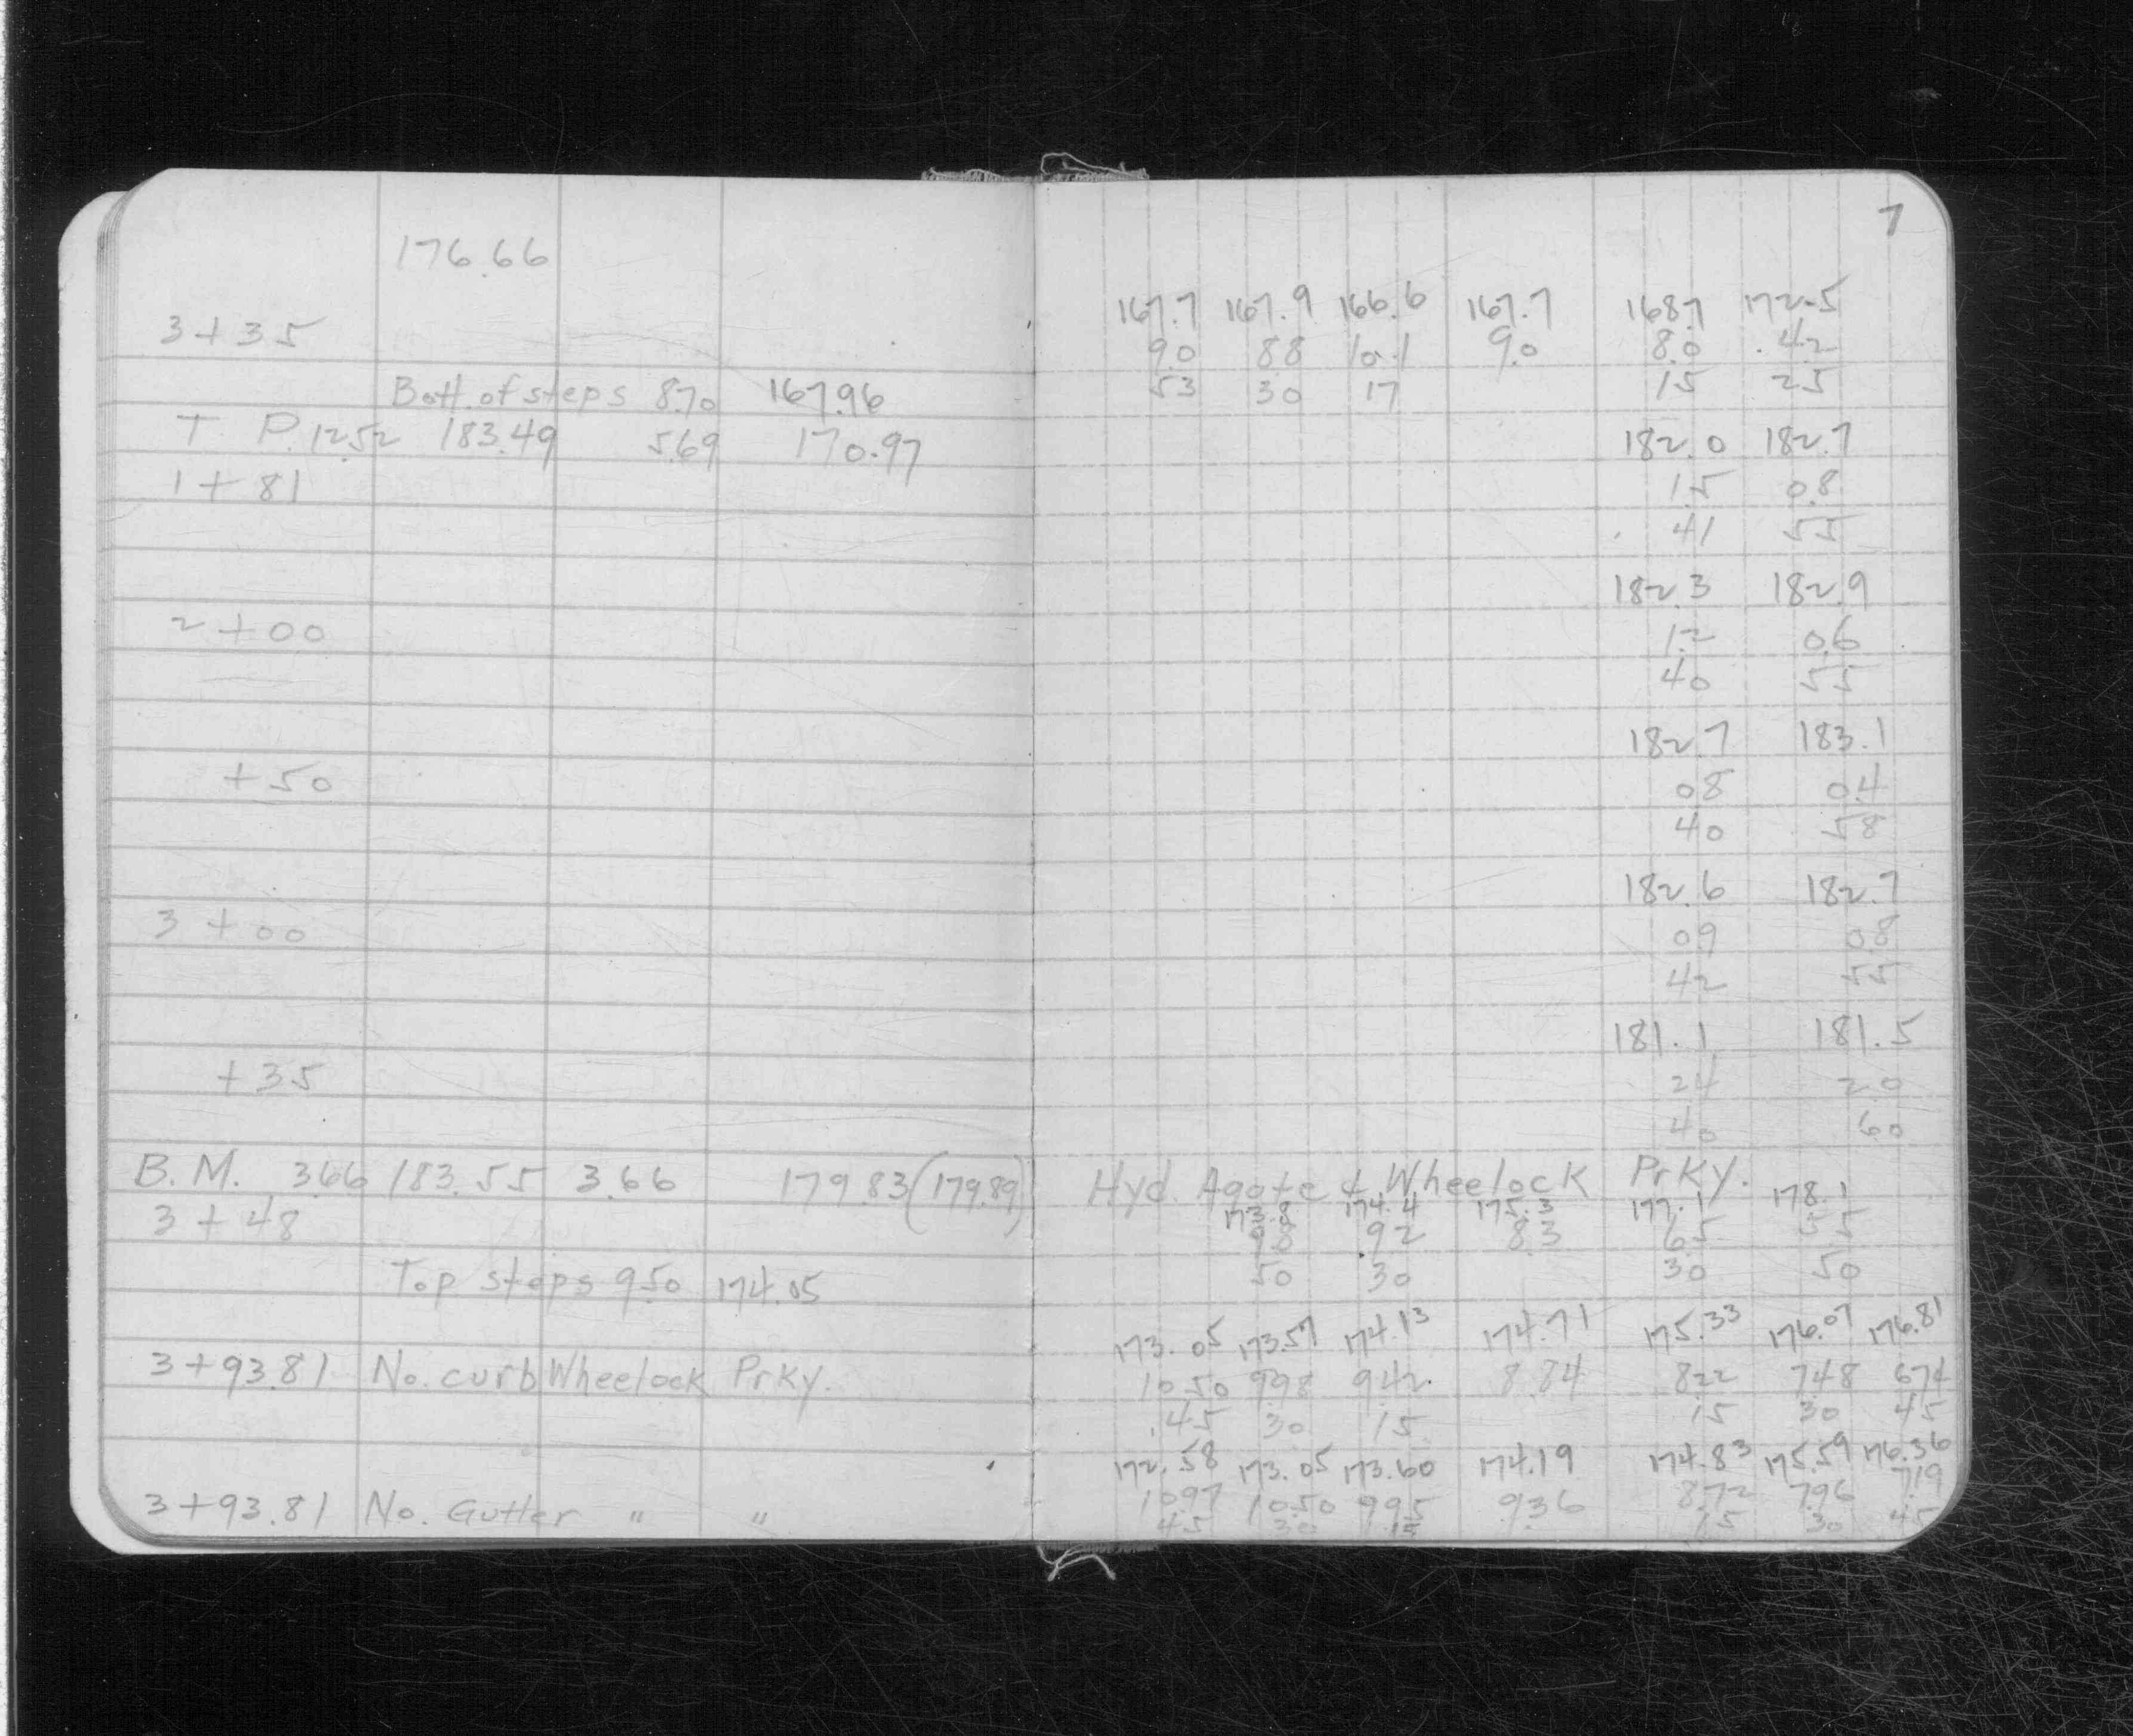 7
176.66
167.7 167.9 166.6 167.7 168.7 172.5
3+35 9.0 8.8 10.1 9.0 8.0 4.2
Bott. of steps 8.70 167.96 53 30 17 15 25
T. P. 12.52 183.49 5.69 170.97 182.0 182.7
1+81 1.5 0.8
41 55
182.3 182.9
2+00 1.2 0.6
40 55
182.7 183.1
+50 0.8 0.4
40 58
182.6 182.7
3+00 0.9 0.8
42 55
181.1 181.5
+35 2.4 2.0
40 60
B.M. 3.66 183.55 3.66 179.83 (179.89) Hyd. Agate & Wheelock Prky.
173.8 174.4 175.3 177.1 178.1
3+48 9.8 9.2 8.3 6.5 5.5
Top steps 9.50 174.05 50 30 30 50
173.05 173.57 174.13 174.71 175.33 176.07 176.81
3+93.81 No. curb Wheelock Prky. 10.50 9.98 9.42 8.84 8.22 7.48 6.74
45 30 15 15 30 45
172.58 173.05 173.60 174.19 174.83 175.59 176.36
3+93.81 No. Gutter " " 10.97 10.50 9.95 9.36 8.72 7.96 7.19
45 30 15 15 30 45